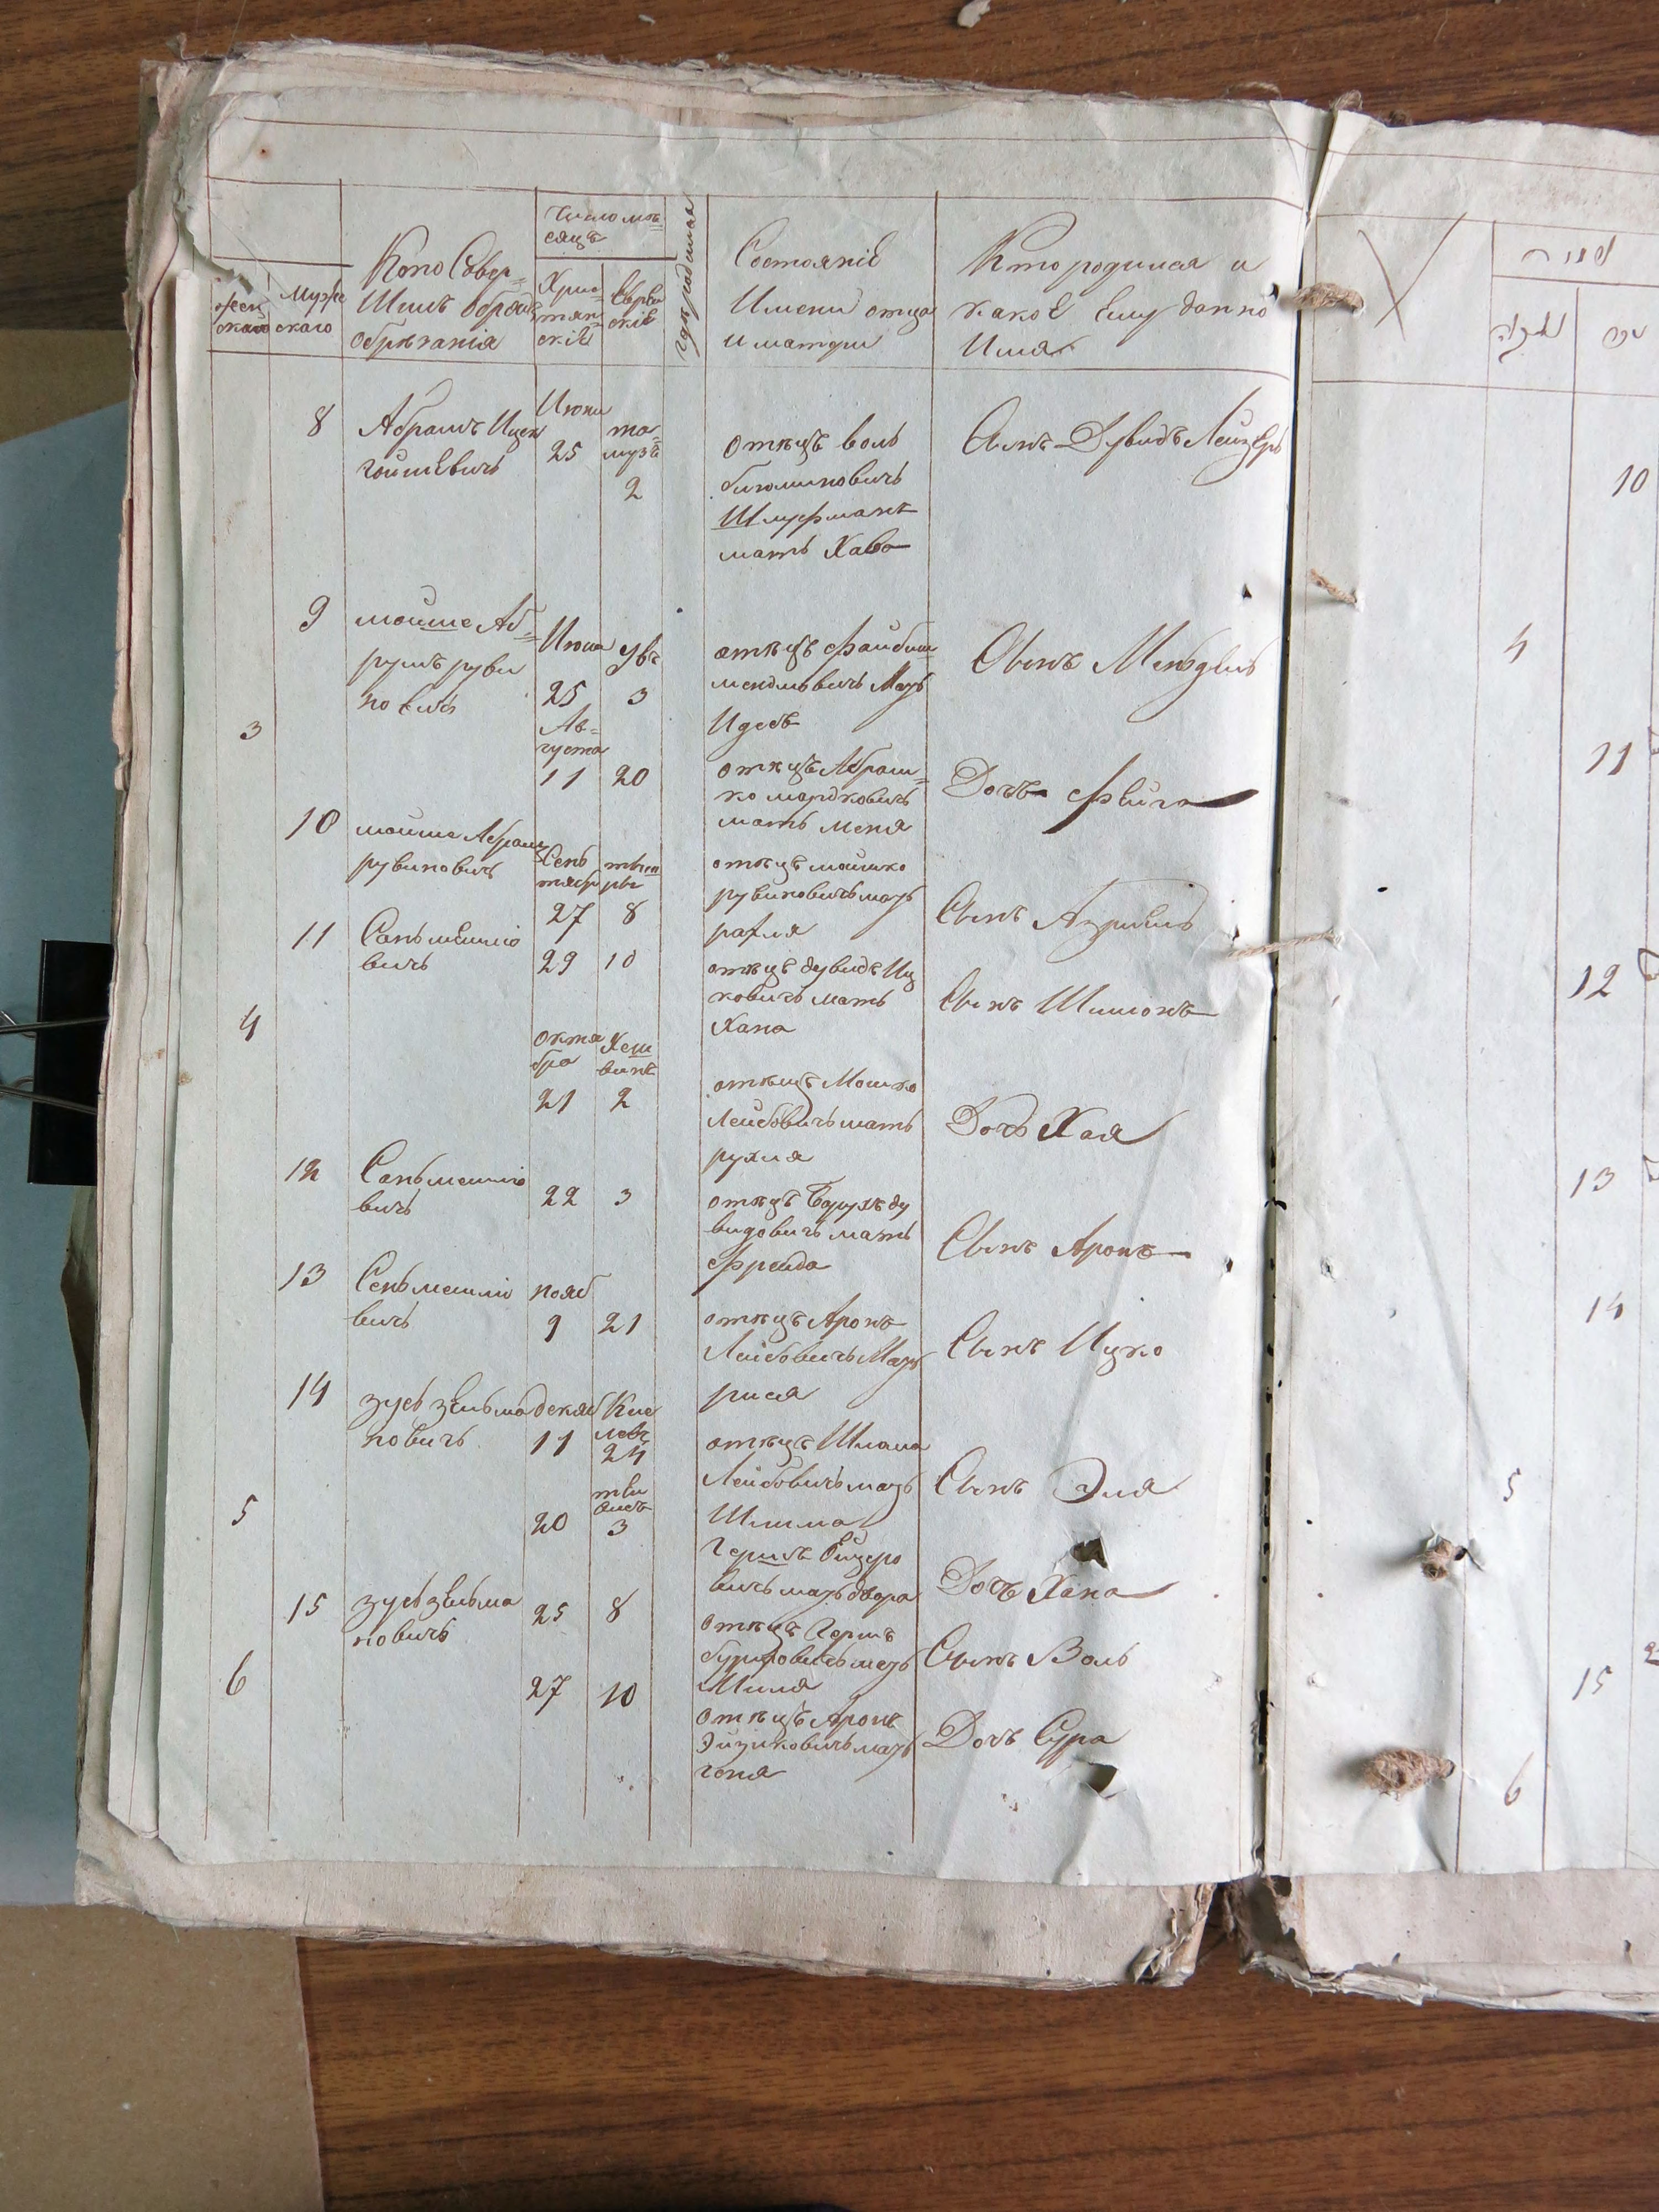 Число мѣ=
сяцъ
жен
скаго
Муже
скаго
Кто Совер=
Шилъ обрядъ
обрѣзанія
Хрис=
тіян=
скій
Еврей
скій
гдѣ родился
Состояніе
Имени отца
и матери
Кто родился и
какое Ему данно
Имя
8
Абрамъ Ицек
гойшевичъ
Июни
25
та=
музъ
2
отецъ воль
биюминовичъ
Шлуфманъ
мать Хава
Сынъ Дувидъ Лейзеръ
9
мойше Аб=
румъ руви
новичъ
Июля
25
увъ
3
отецъ файбиш
мендловичъ мать
Идесъ
Сынъ Мендель
3
Ав=
густа
11
20
отецъ Абраш=
ко мордковичъ
мать меня
Дочь фейга
10
мойше Абрам
рувиновичъ
Сень
тября
27
8
отецъ мошко
рувиновичъ мать
рахля
Сынъ Азриель
11
Сань мешило
вичъ
29
10
отецъ дувидъ Иц
ковичъ мать
Хана
Сынъ Шимонъ
4
октя
бра
21
Хеш
винъ
2
отецъ Мошко
Лейбовичъ мать
рухля
Дочь Хая
12
Сань мешило
вичъ
22
3
отецъ Барухъ ду
видовичъ мать
фрейда
Сынъ Аронъ
13
Сень мешило
вичъ
нояб
9
21
отецъ Аронъ
Лейбовичъ Мать
рися
Сынъ Ицко
14
зусь зельма
новичъ
декаб
11
Кис
левъ
24
отецъ Шлома
Лейбовичъ мать
Шлима
Сынъ Эля
5
20
3
Гершъ Ейзеро
вичъ мать двора
Дочь Хана
15
зусь зельма
новичъ
25
8
отецъ Гершъ
мать
Миля
Сынъ Воль
6
27
10
отецъ Аронъ
Эйзиковичъ мать
геня
Дочь Сура
10
4
11
12
13
14
5
15
6